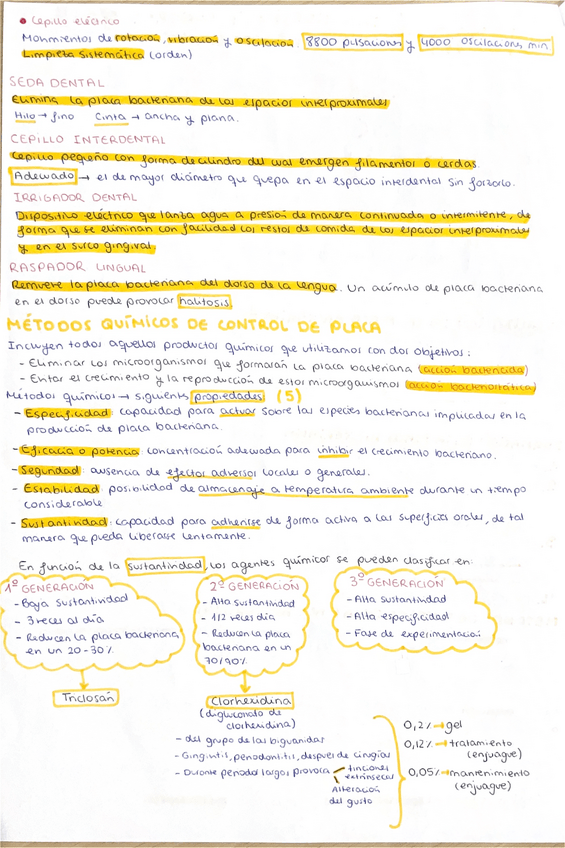 • Cepillo eléctrico
Movimientos de rotación, vibración y oscilación. 8800 pulsaciones y 4000 oscilaciones min
Limpieza sistemática (orden)
SEDA DENTAL
Elimina la placa bacteriana de los espacios interproximales
Hilo → fino Cinta → ancha y plana.
CEPILLO INTERDENTAL
Cepillo pequeño con forma de cilindro del cual emergen filamentos o cerdas.
Adecuado → el de mayor diámetro que quepa en el espacio interdental sin forzarlo.
IRRIGADOR DENTAL
Dispositivo eléctrico que lanza agua a presión de manera continuada o intermitente, de
forma que se eliminan con facilidad los restos de comida de los espacios interproximales
y en el surco gingival.
RASPADOR LINGUAL
Remueve la placa bacteriana del dorso de la lengua. Un acúmulo de placa bacteriana
en el dorso puede provocar halitosis.
MÉTODOS QUÍMICOS DE CONTROL DE PLACA
Incluyen todos aquellos productos químicos que utilizamos con dos objetivos:
- Eliminar los microorganismos que formarán la placa bacteriana (acción bactericida)
- Evitar el crecimiento y la reproducción de estos microorganismos (acción bacteriostática)
Métodos químicos → siguients propiedades (5)
- Especificidad: capacidad para actuar sobre las especies bacterianas implicadas en la
producción de placa bacteriana.
- Eficacia o potencia: concentración adecuada para inhibir el crecimiento bacteriano.
- Seguridad: ausencia de efectos adversos locales o generales.
- Estabilidad: posibilidad de almacenaje a temperatura ambiente durante un tiempo
considerable
- Sustantividad: capacidad para adherirse de forma activa a las superficies orales, de tal
manera que pueda liberarse lentamente.
En función de la sustantividad, los agentes químicos se pueden clasificar en:
1º GENERACIÓN
- Baja sustantividad
- 3 veces al día
- Reducen la placa bacteriana
en un 20-30%
Triclosán
2º GENERACIÓN
- Alta sustantividad
- 1/2 veces día
- Reducen la placa
bacteriana en un
70/90%
Clorhexidina
(digluconato de
clorhexidina)
- del grupo de las biguanidas
- Gingivitis, periodontitis, después de cirugías
- Durante periodos largos provoca tinciones
extrínsecas
Alteración
del gusto
3º GENERACIÓN
- Alta sustantividad
- Alta especificidad
- Fase de experimentación
0,2% → gel
0,12% → tratamiento
(enjuague)
0,05% → mantenimiento
(enjuague)